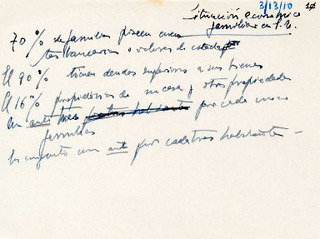 3/13/10
Situación económica
familiar en
70% de familias poseen cuen
tas bancarias o valores de estado
El 90% tienen deudas superiores a sus bienes
El 16% propietarios de su casa y otras propiedades
Un auto tres por cada cinco
familias
En conjunto un auto por cada tres habitante –